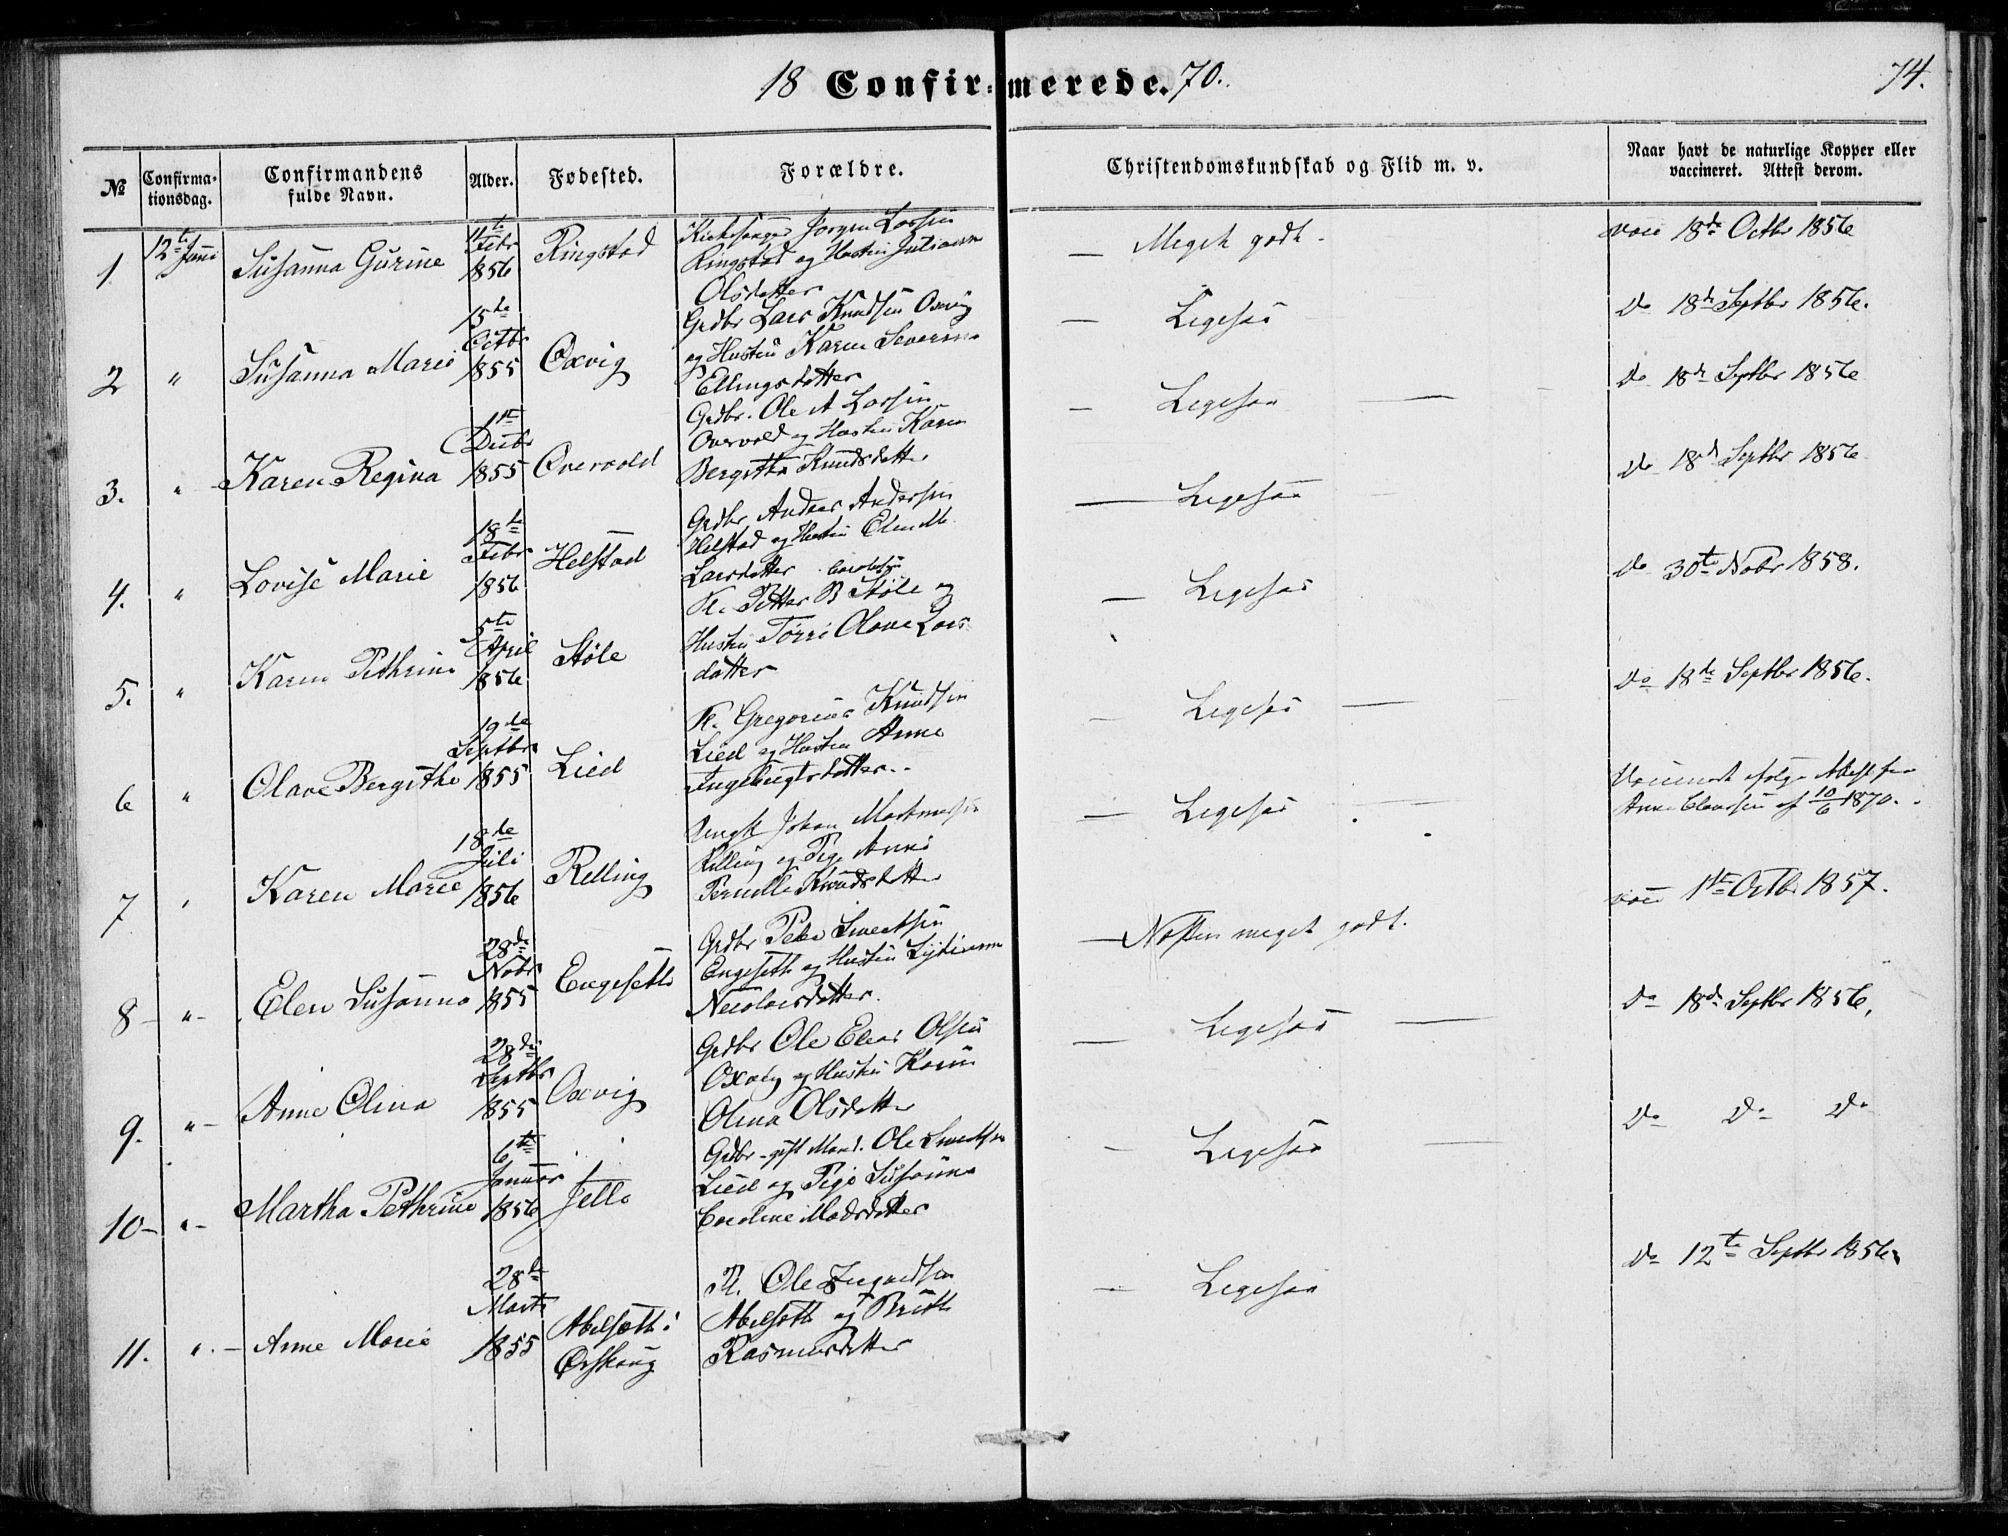 18 Confirmerede. 70.
74.
№ Confirma-tionsdag. Confirmandens fulde Navn. Alder. Fødested. Forældre. Christendomskundskab og Flid m. v. Naar havt de naturlige Kopper eller vaccineret. Attest derom.
1 12te Juni Susanna Gurine 11te Febr 1856 Ringstad Kirkesanger Jørgen Larsen
Ringstad og Hustru Juliane
Olsdatter
Meget godt. vacc 18de Octbr 1856
2 " Susanna Marie 15de Octbr 1855 Oxvig Grdbr Lars Knudsen Oxvig
og Hustru Karen Severine
Ellingsdatter
Ligesaa Do 18de Septbr 1856.
3. " Karen Regina 1ste Decbr 1855 Overvold Grdbr. Ole A Larsen
Overvold og Hustru Karen
Bergitha Knudsdatter
Ligesaa Do 18de Septbr 1856
4. " Lovise Marie 18de Febr 1856 Helstad Grdbr Andreas Andersen
Helstad og Hustru Elen M.
Larsdatter
Ligesaa Do 18de Septbr 1856
5. " Karen Pethrine 5te April 1856 Støle Petter B Støle og
Hustru Olave Lars
datter
Ligesaa Do 30te Novbr 1858.
6 " Olave Bergithe 19de Septbr 1855 Lied Gregorius Knudsen
Lied og Hustru Anne
Ingebrigtsdatter.
Ligesaa Do 18de Septbr 1856.
7 " Karen Marie 18de Juli 1856 Relling Ungk Johan
Relling og Pige Anne
Pernille Knudsdatter
Ligesaa Vaccineret ifølge Attest fra
10/6 1870.
8 - " - Elen Susanna 28de Novbr 1855 Engesetb Grdbr Peter Sivertsen
Engeseth og Hustru
Nicolaisdatter.
Næsten meget godt. vacc 1ste Octbr 1857.
9. " - Anne Olina 28de Septbr 1855 Oxvig Grdbr Ole Elias Olsen
Oxvig og Hustru Karen
Olina Olsdatter
Ligesaa Do 18de Septbr 1856,
10 - " - Martha Pethrine 6te Januar 1856 Jelle Grdbr - gift Mand. Ole Sivertsen
Lied og Pige Susanna
Caroline Madsdatter
Ligesaa Do Do Do
11. " - Anne Marie 28de Marts 1855 Abelseth i
Ørskoug Ole
Abelseth og Brithe
Rasmusdatter
Ligesaa Do 12te Septbr 1856.